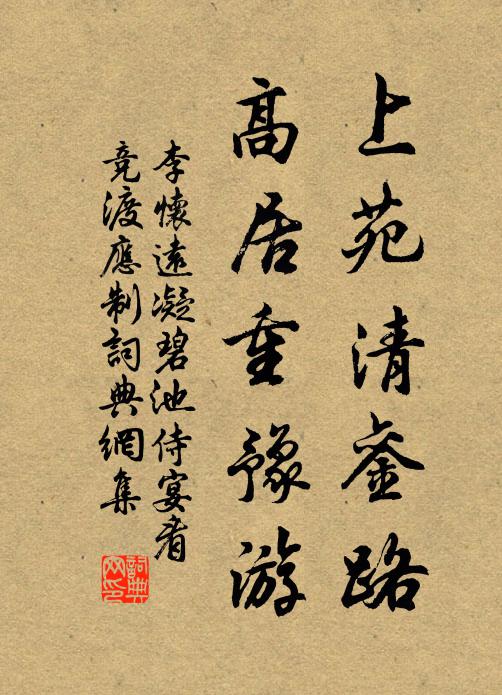 上苑清銮路
高居重豫游
李懷遠凝碧池侍宴看
竞渡應制詞典網集
詞典
网印